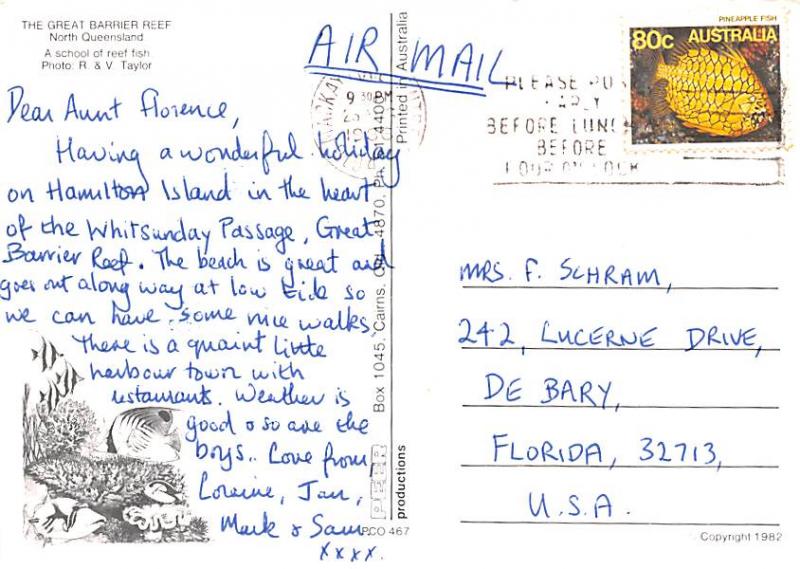 THE GREAT BARRIER REEF
North Queensland
A school of reef fish
Photo: R. & V. Taylor
AIR MAIL
PINEAPPLE FISH
80c AUSTRALIA
9 30 PM
PLEASE
BEFORE
BEFORE
Dear Aunt Florence,
Having a wonderful holiday
on Hamilton Island in the heart
of the Whitsunday Passage, Great
Barrier Reef. The beach is great and
goes out along way at low tide so
we can have some nice walks
There is a quaint little
harbour town with
restaurants. Weather is
good & so are the
boys.. Love from
Loraine, Jan,
Mark & Sam.
xxxx.
PCO 467
Printed in Australia
Box 1045, Cairns,
4870,
PEER
productions
MRS. F. SCHRAM,
242, LUCERNE DRIVE,
DE BARY,
FLORIDA, 32713,
U.S.A.
Copyright 1982